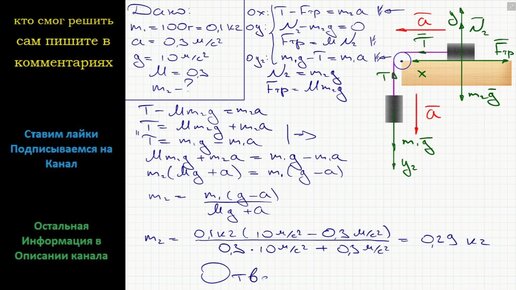 кто смог решить
сам пишите в
комментариях
Ставим лайки
Подписываемся на
Канал
Остальная
Информация в
Описании канала
Дано:
m₁=100г=0,1кг
a=0,3 м/с²
g=10 м/с²
M=0,3
m₂-?
ox: T-Fтр=m₂a
oy: N₂-m₂g=0
Fтр=MN₂
oy₂: m₁g-T=m₁a
N₂=m₂g
Fтр=Mm₂g
T-Mm₂g=m₂a
T=Mm₂g+m₂a
T=m₁g-m₁a
Mm₂g+m₂a=m₁g-m₁a
m₂(Mg+a)=m₁(g-a)
m₂= m₁(g-a) / Mg+a
m₂= 0,1кг(10м/с²-0,3м/с²) / 0,3·10м/с²+0,3м/с² = 0,29 кг
Отв
a
y
N₂
T
x
m₂g
T
a
m₁g
y₂
Fтр